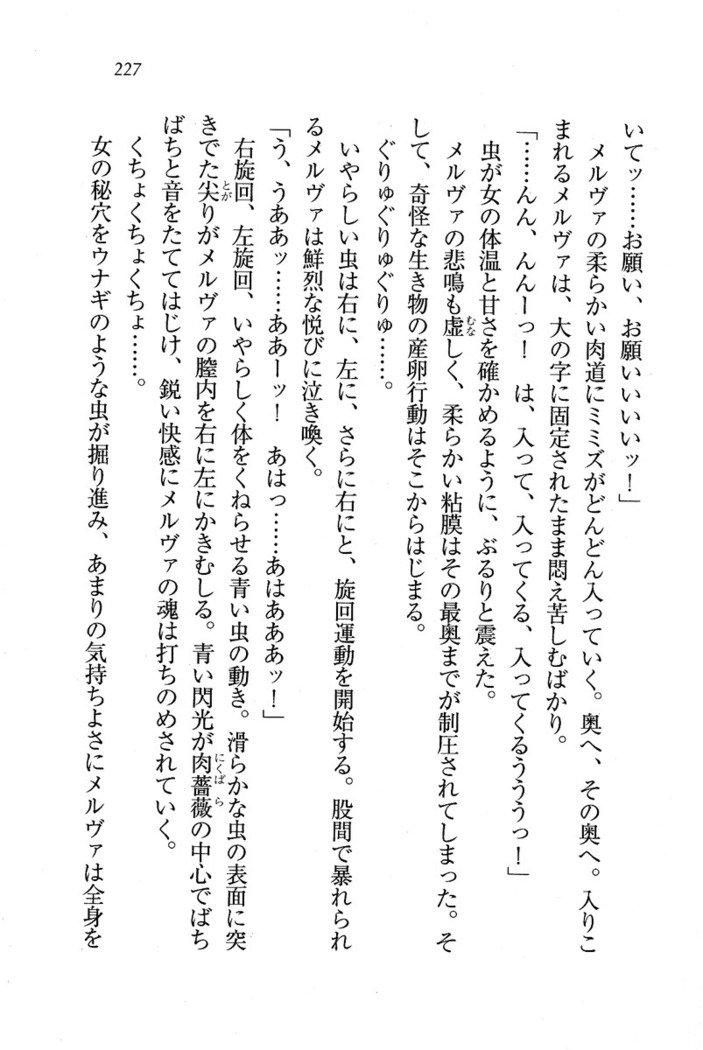 227
いてッ……お願い、お願いいいいッ！」
メルヴァの柔らかい肉道にミミズがどんどん入っていく。奥へ、その奥へ。入りこ
まれるメルヴァは、大の字に固定されたまま悶え苦しむばかり。
「……んん、んんーっ！　は、入って、入ってくる、入ってくるうううっ！」
虫が女の体温と甘さを確かめるように、ぶるりと震えた。
メルヴァの悲鳴も虚むなしく、柔らかい粘膜はその最奥までが制圧されてしまった。そ
して、奇怪な生き物の産卵行動はそこからはじまる。
ぐりゅぐりゅぐりゅ……。
いやらしい虫は右に、左に、さらに右にと、旋回運動を開始する。股間で暴れられ
るメルヴァは鮮烈な悦びに泣き喚く。
「う、うああッ……ああーッ！　あはっ……あはあああッ！」
右旋回、左旋回、いやらしく体をくねらせる青い虫の動き。滑らかな虫の表面に突
きでた尖とがりがメルヴァの膣内を右に左にかきむしる。青い閃光が肉薔薇にくばらの中心でばち
ばちと音をたててはじけ、鋭い快感にメルヴァの魂は打ちのめされていく。
くちょくちょくちょ……。
女の秘穴をウナギのような虫が掘り進み、あまりの気持ちよさにメルヴァは全身を